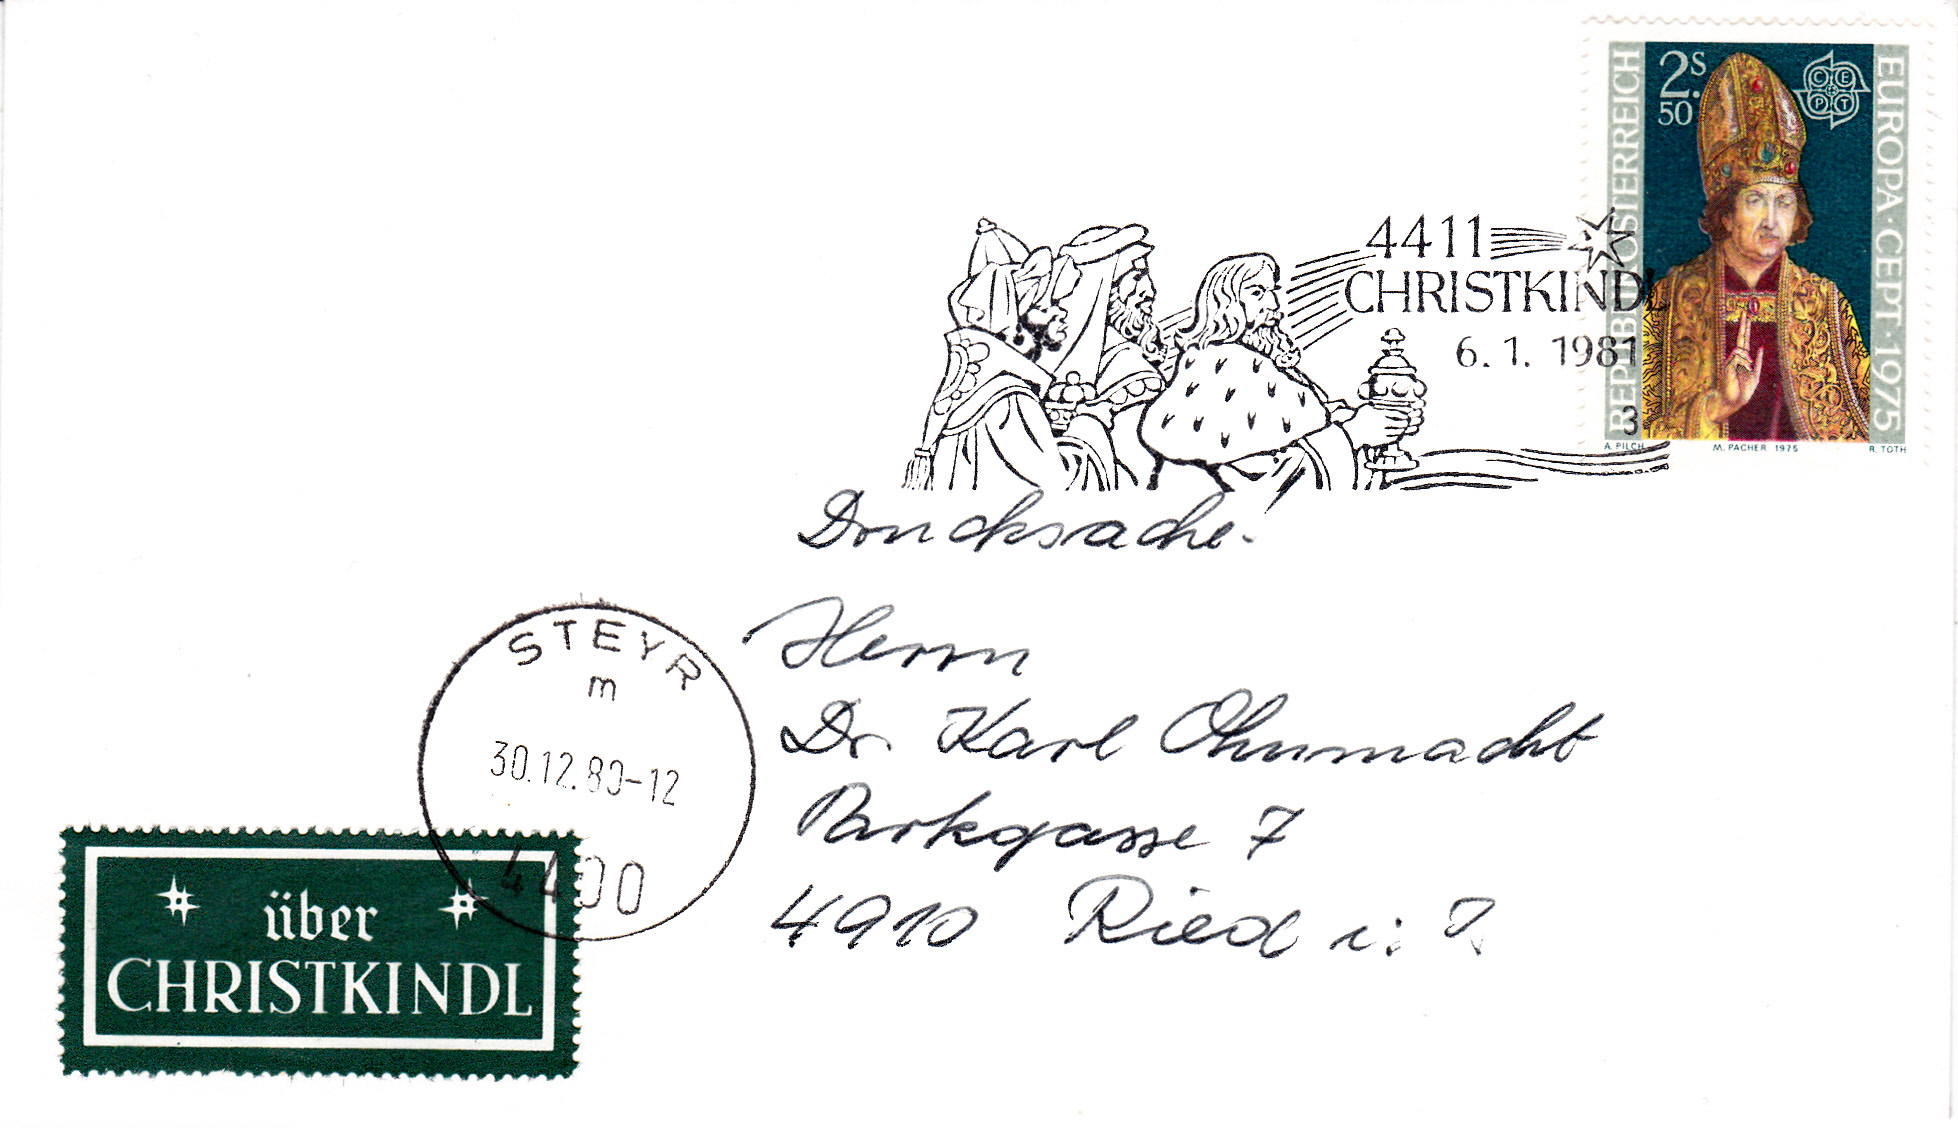 REPUBLIK ÖSTERREICH
2.S
50
CEPT
EUROPA · CEPT · 1975
A. PILCH
M. PACHER 1975
R. TOTH
4411
CHRISTKINDL
6. 1. 1981
3
Drucksache.
Herrn
Dr. Karl Ohnmacht
Parkgasse 7
4910 Ried i. I
STEYR
m
30.12.80-12
4400
über
CHRISTKINDL